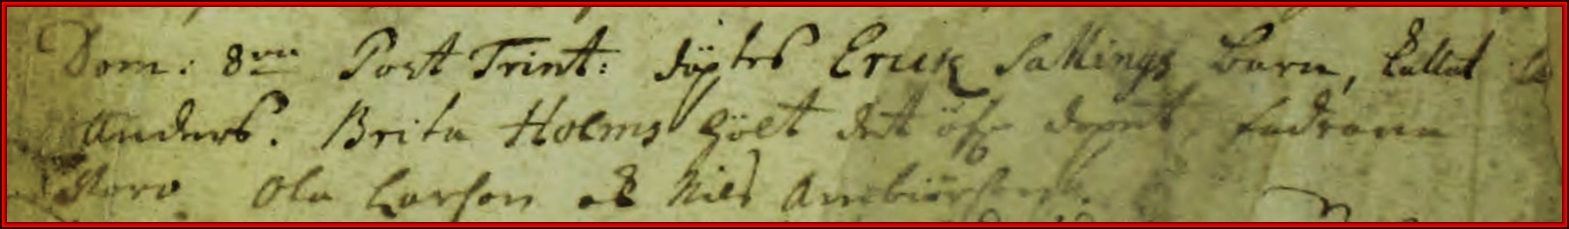 Dom: 8va Post Trinit: döptes Erick Sallings barn, kallat
Anders. Brita Holms hölt det öfr dopet, fadrarna
Woro Ola Larson ok Nils Arnbiörson.